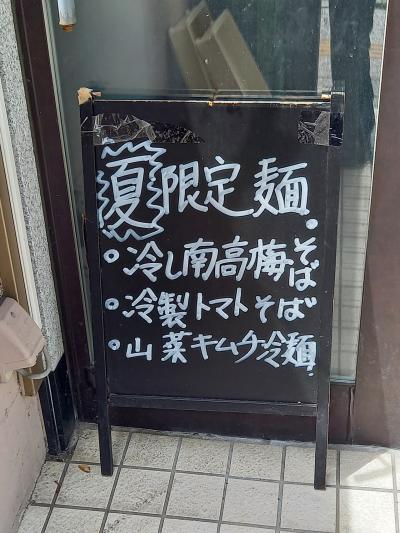 夏限定麺
・冷し南高梅そば
・冷製トマトそば
・山菜キムチ冷麺